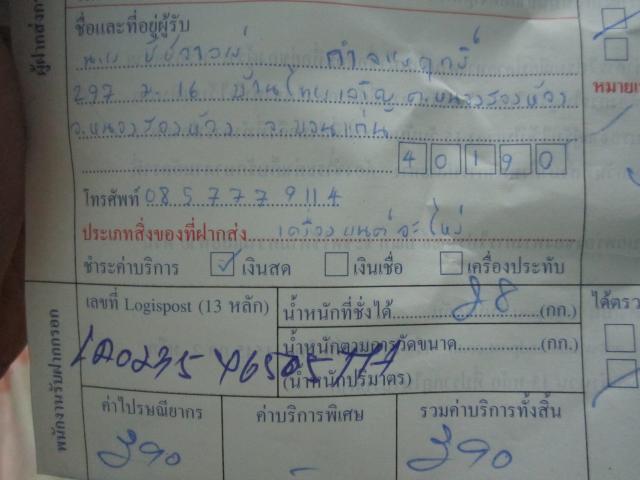 ชื่อและที่อยู่ผู้รับ
นาย
297 ม.16 บ้านไทยเจริญ ต.หนองสองห้อง
อ.หนองสองห้อง จ.ขอนแก่น
40190
โทรศัพท์ 085 777 9114
ประเภทสิ่งของที่ฝากส่ง เครื่องยนต์อะไหล่
ชำระค่าบริการ ✓ เงินสด เงินเชื่อ เครื่องประทับ
หมายเ
ผู้ฝากส่งก
เลขที่ Logispost (13 หลัก)
น้ำหนักที่ชั่งได้ 28 (กก.)
ได้ตรว
น้ำหนักตามการวัดขนาด (กก.)
(น้ำหนักปริมาตร)
พนักงานรับฝากกรอก
ค่าไปรษณียากร ค่าบริการพิเศษ รวมค่าบริการทั้งสิ้น
390 - 390